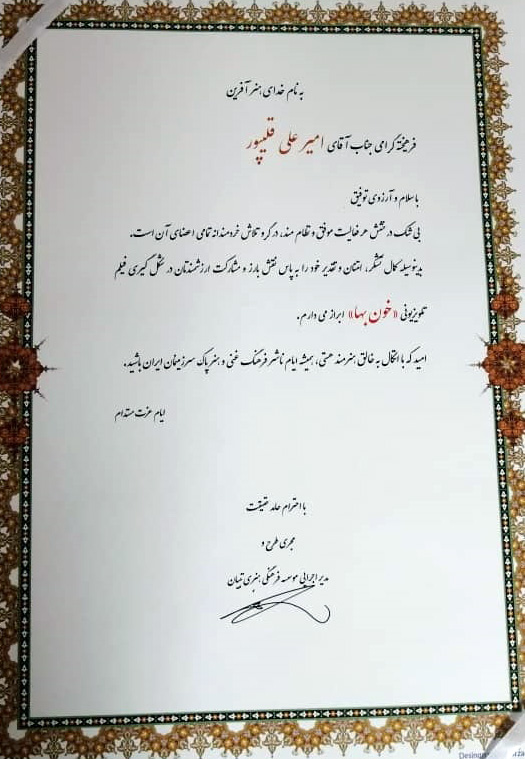 به نام خدای هنر آفرین
فرهیخته گرامی جناب آقای امیر علی قلیپور
با سلام و آرزوی توفیق
بی شک در نقش هر فعالیت موفق و نظام مند، در گرو تلاش خردمندانه تمامی اعضای آن است.
بدینوسیله کمال تشکر، امتنان و تقدیر خود را به پاس نقش بارز و مشارکت ارزشمندتان در شکل گیری فیلم
تلویزیونی «خون بها» ابراز می دارم.
امید که با اتکال به خالق هنرمند هستی، همیشه ایام ناشر فرهنگ غنی و هنر پاک سرزمینمان ایران باشید.
ایام عزت مستدام
با احترام حامد حقیقت
مجری طرح و
مدیر اجرایی موسسه فرهنگی هنری تبیان